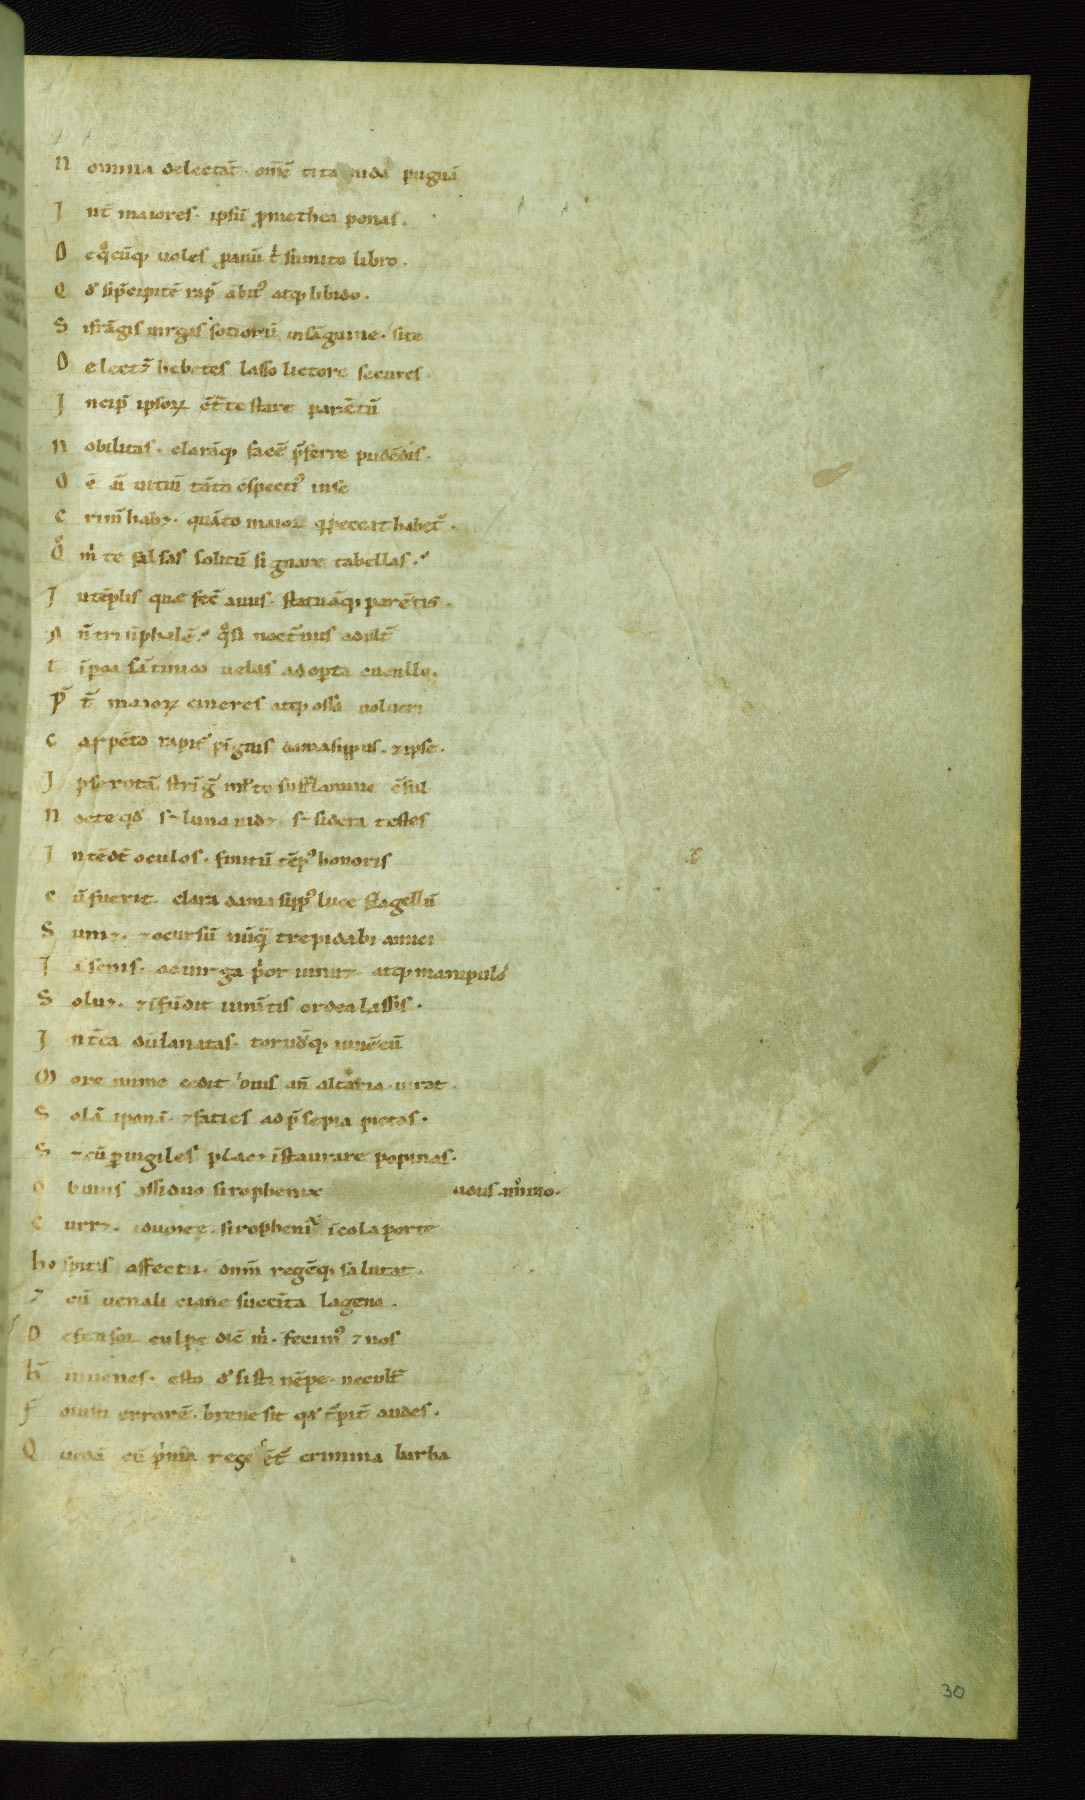 N omina delectāt · om̄ē titanida pugnā
I nt̄ maiores · ipsū p̄methea ponas ·
D eq̊cūq; uoles ꝓauū t̓ sumito libro ·
Q đ sip̄cipitē rap̄ ābit⁹ atq; libido ·
S ifrāgis uirgas sotiorū insāguine · site
D elect̄ hebetes lasso lictore secures ·
I ncip̄ ipsoꝝ ēt̄te stare parētū
N obilitas · clarāq; facē p̄ferre pudēdis ·
O ē aī uitiū tāto ēspecti⁹ inse
C rim̄ hab⁊ · quāto maior q̄peccat habet̄ ·
Q̊ m̓ te falsas solitū signare tabellas ·
I ntēplis quae fec̄ auus · statuāq; parētis ·
A n̄ triūphalē · q̊si nocturnus adult̄
T īpora sātonico uelas adopta cucullo ·
P̄ t̄ maioꝝ cineres atq; ossa uolucri
C arpēto rapit̄ pīguis damasippus · ⁊ ipse ·
I pse rotā strīḡ ml̓to sufflamine c̄sul
N octe qđ s; luna uid⁊ · s; sidera testes
I ntēdt̄ oculos · finitū tēp⁹ honoris
C ū fuerit · clara damasipp⁹ luce flagellū
S um⁊ · ⁊ocursū nūq̄ trepidabi amici
I ā senis · ac uirga p̓or innu⁊ · atq; manipulos
S olu⁊ · ⁊īfūdit iumītis ordea lassis ·
I nt̄ea dū lanatas · toruūq; iuuēcū
M ore nume cedit ouis an̄ altaria · iurat ·
S olā iponā · ⁊faties ad p̄sepia pictas ·
S ⁊ cū ꝑuigiles plac⁊ īstaurare popinas ·
O buius assiduo sirophenix udus amomo ·
C urr⁊ · idumee · sirophenix īcola porte
ho spitis affectu · dnm̄ regēq; salutat ·
⁊ cū uenali ciane succīta lagena ·
D efensor culpe dic̄ m̓ · fecim⁹ ⁊ nos
h̄ iuuenes · esto đsisti nēpe · necult̄
F ouisti errorē · breue sit qđ t̄pit̄ audes ·
Q uedā cū p̓ma rese ēt̄ crimina barba
30